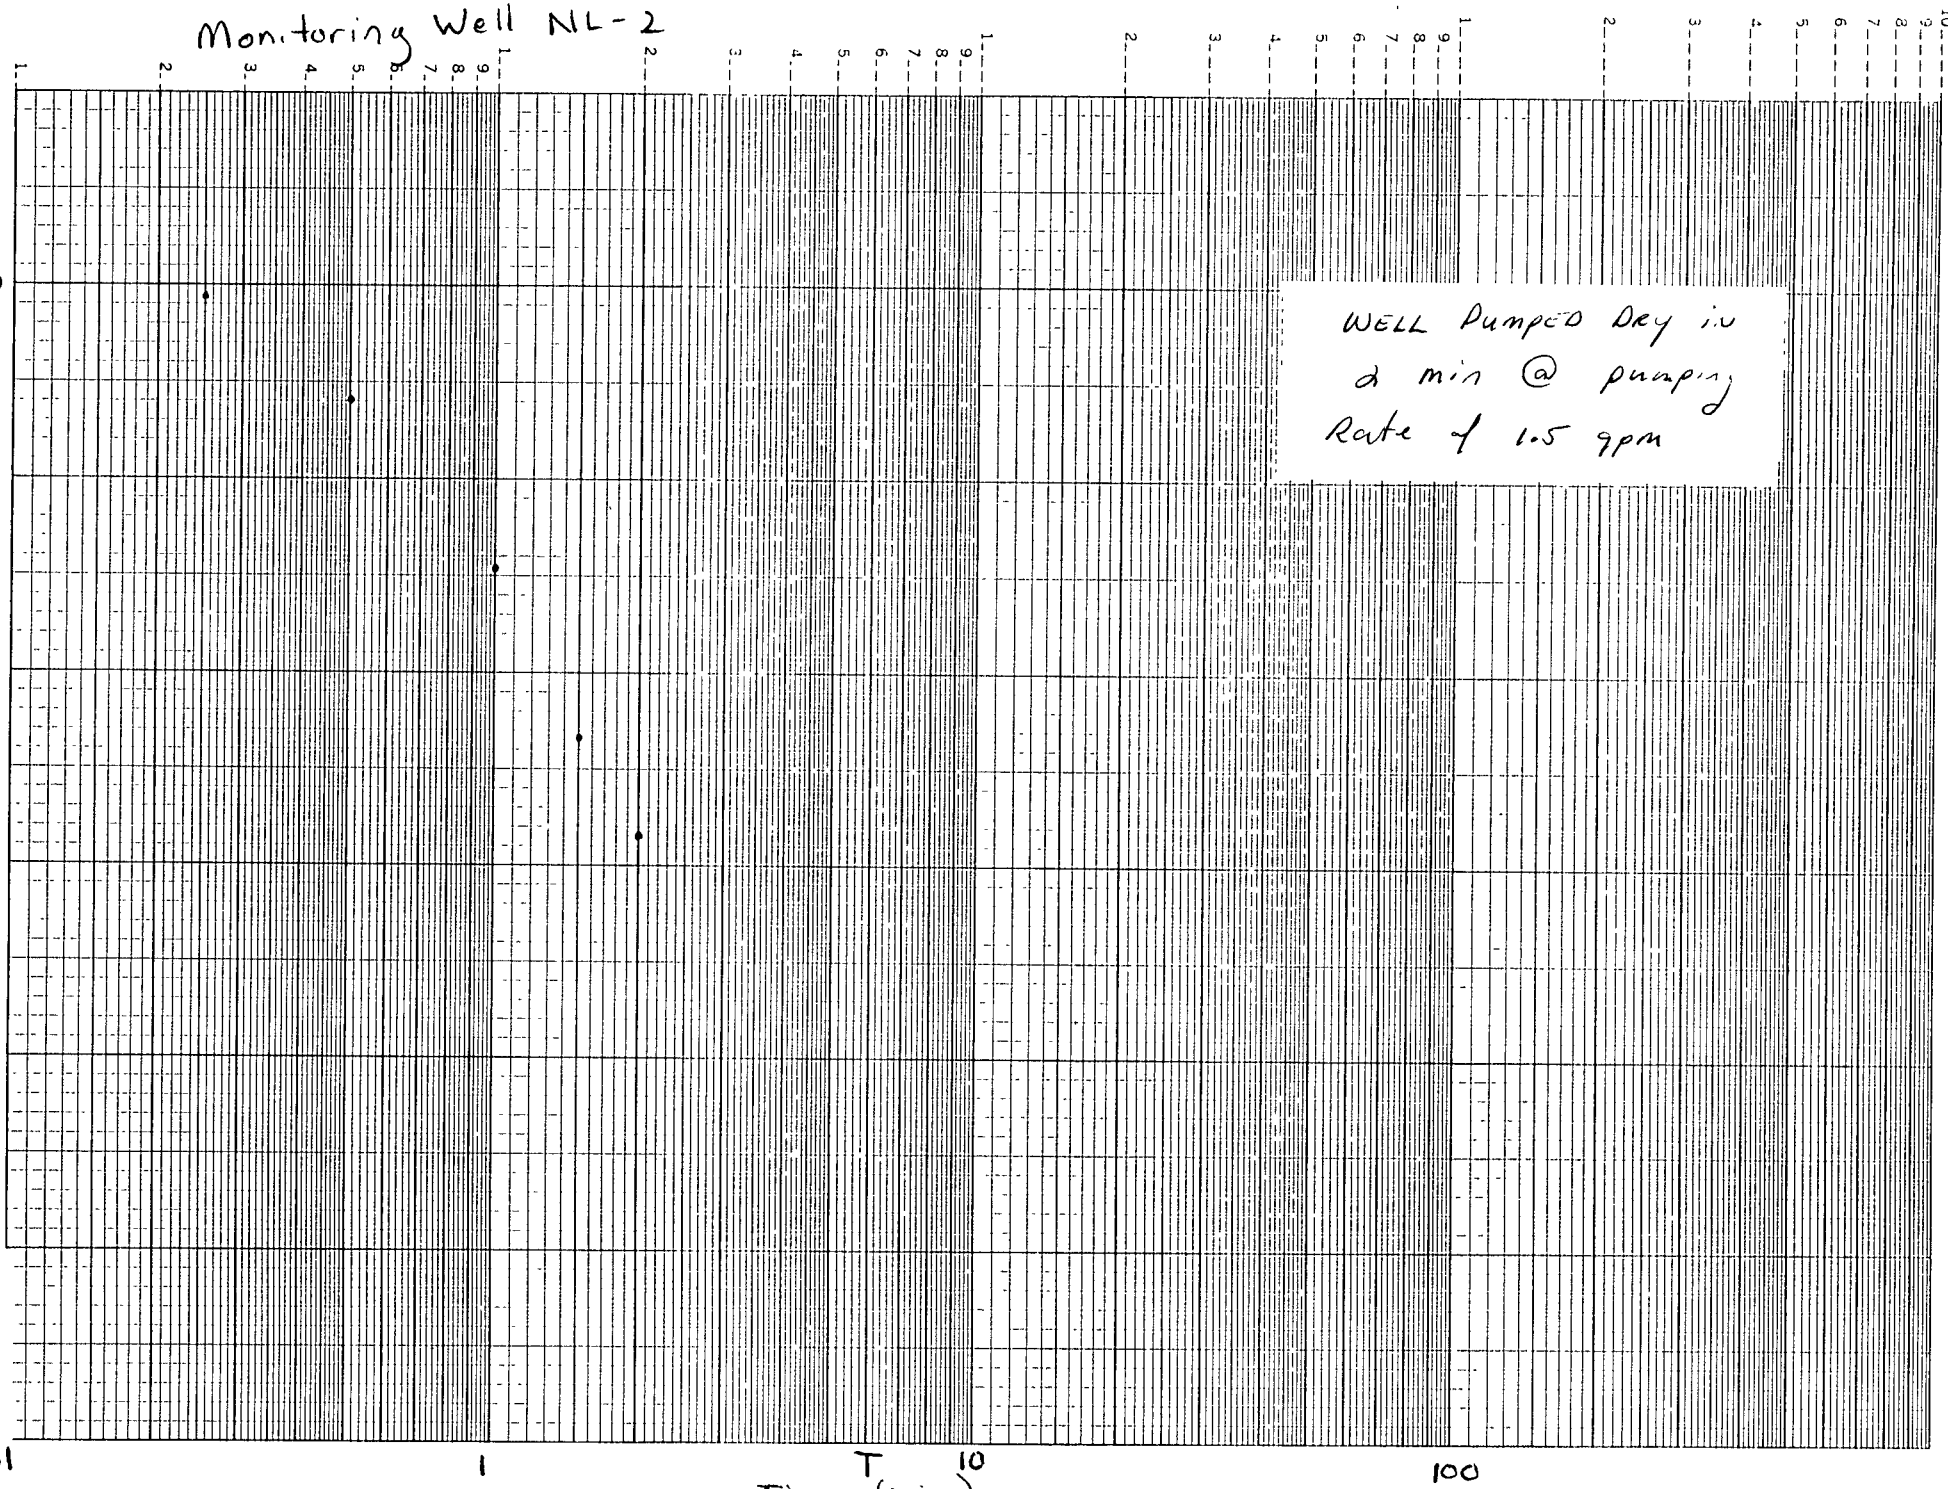 Monitoring Well NL-2
1 2 3 4 5 6 7 8 9 1 2 3 4 5 6 7 8 9 1 2 3 4 5 6 7 8 9 1 2 3 4 5 6 7 8 9 10
WELL PUMPED DRY in
2 min @ pumping
Rate of 1.5 gpm
1 10 100
T